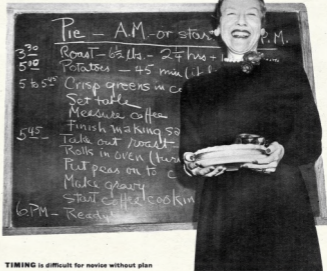 Pie — A.M. or star P.M.
3:30 Roast — 6½ lbs. — 2¼ hrs —
5:00 Potatoes — 45 min
5 to 5:45 Crisp greens in
Set table
Measure coffee
Finish making
5:45 — Take out roast
Rolls in oven
Put peas on to
Make gravy
Start coffee cookin
6 P.M. — Ready
TIMING is difficult for novice without plan